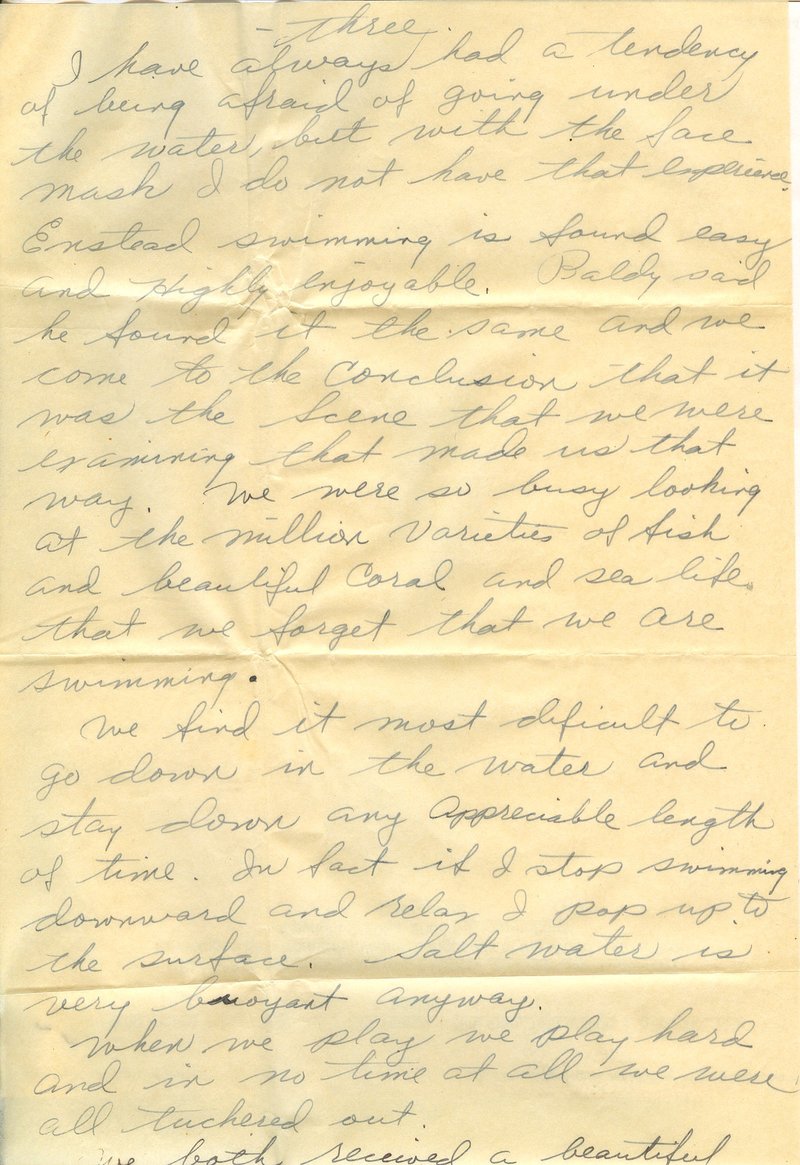 - three.
I have always had a tendency
of being afraid of going under
the water, but with the face
mask I do not have that experience.
Enstead swimming is found easy
and Highly enjoyable. Baldy said
he found it the same and we
come to the Conclusion that it
was the Scene that we were
examining that made us that
way. We were so busy looking
at the million Varieties of fish
and beautiful Coral and sea life
that we forget that we are
swimming.
We find it most dificult to
go down in the water and
stay down any appreciable length
of time. In fact if I stop swimming
downward and relax I pop up to
the surface. Salt water is
very buoyant anyway.
When we play we play hard
and in no time at all we were
all tuchered out.
We both received a beautiful